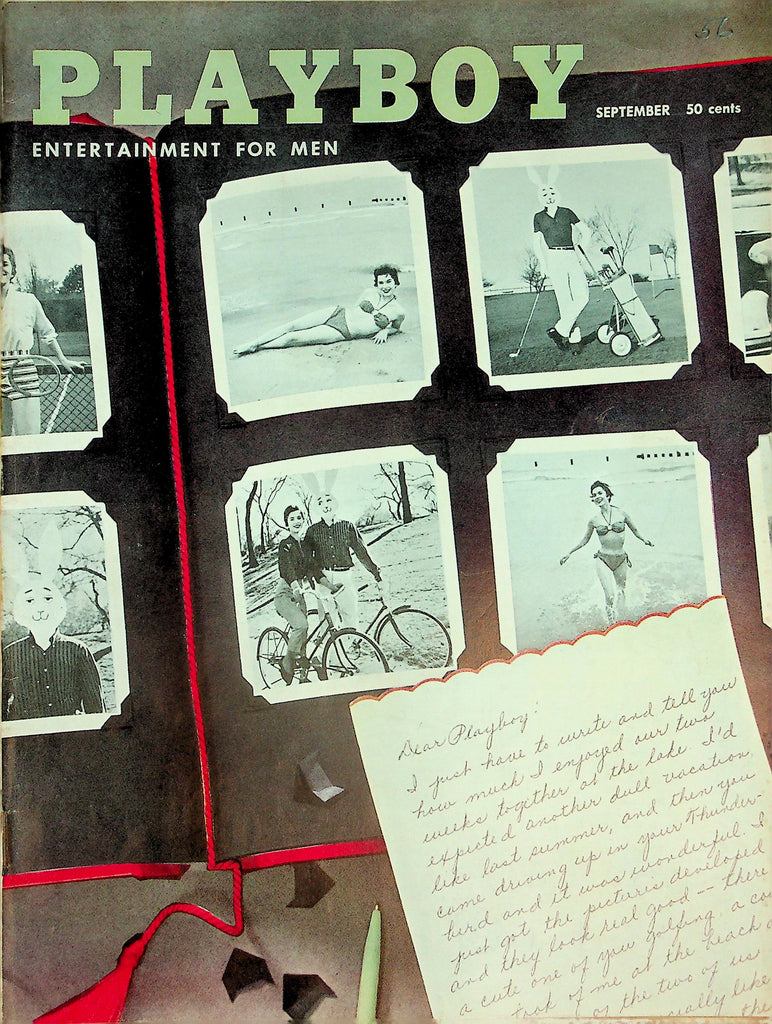 56
PLAYBOY
SEPTEMBER 50 cents
ENTERTAINMENT FOR MEN
Dear Playboy:
I just have to write and tell you
how much I enjoyed our two
weeks together at the lake. I'd
expected another dull vacation,
like last summer, and then you
came driving up in your Thunder-
bird and it was wonderful. I
just got the pictures developed
and they look real good -- there
a cute one of you golfing, a
took of me at the beach
of the two of us
like
the